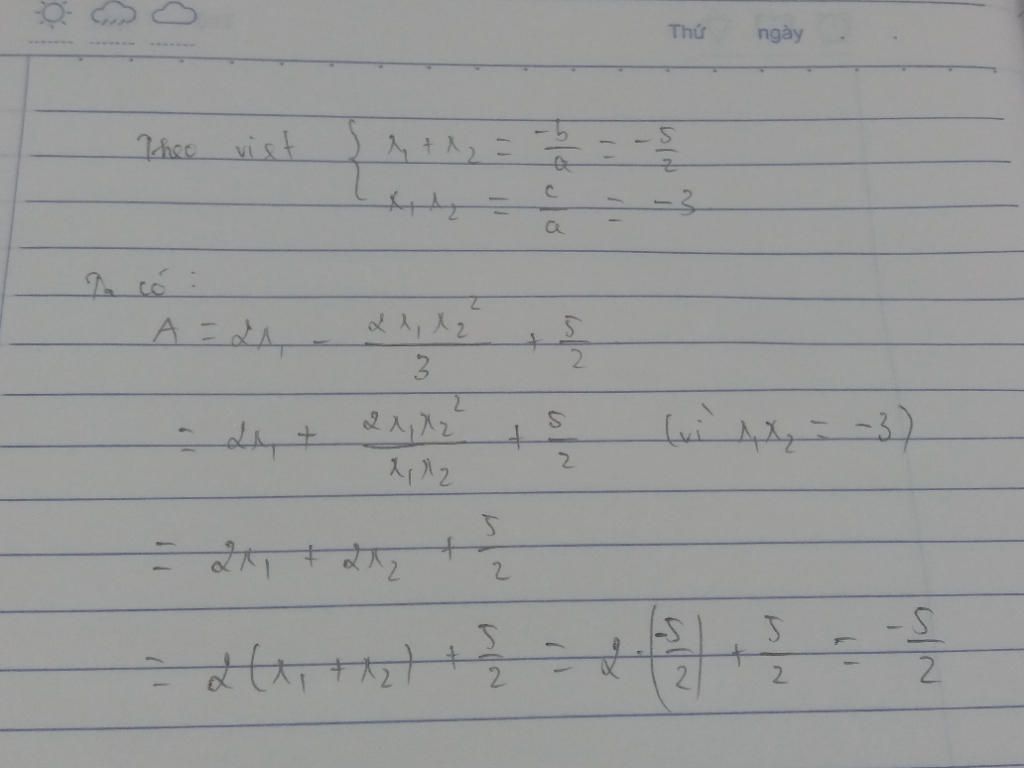 Thứ ngày
Theo viet { x₁ + x₂ = -b/a = -5/2
x₁x₂ = c/a = -3
Ta có :
A = 2x₁ - 2x₁x₂²/3 + 5/2
= 2x₁ + 2x₁x₂²/x₁x₂ + 5/2 (vì x₁x₂ = -3)
= 2x₁ + 2x₂ + 5/2
= 2(x₁ + x₂) + 5/2 = 2·(-5/2) + 5/2 = -5/2